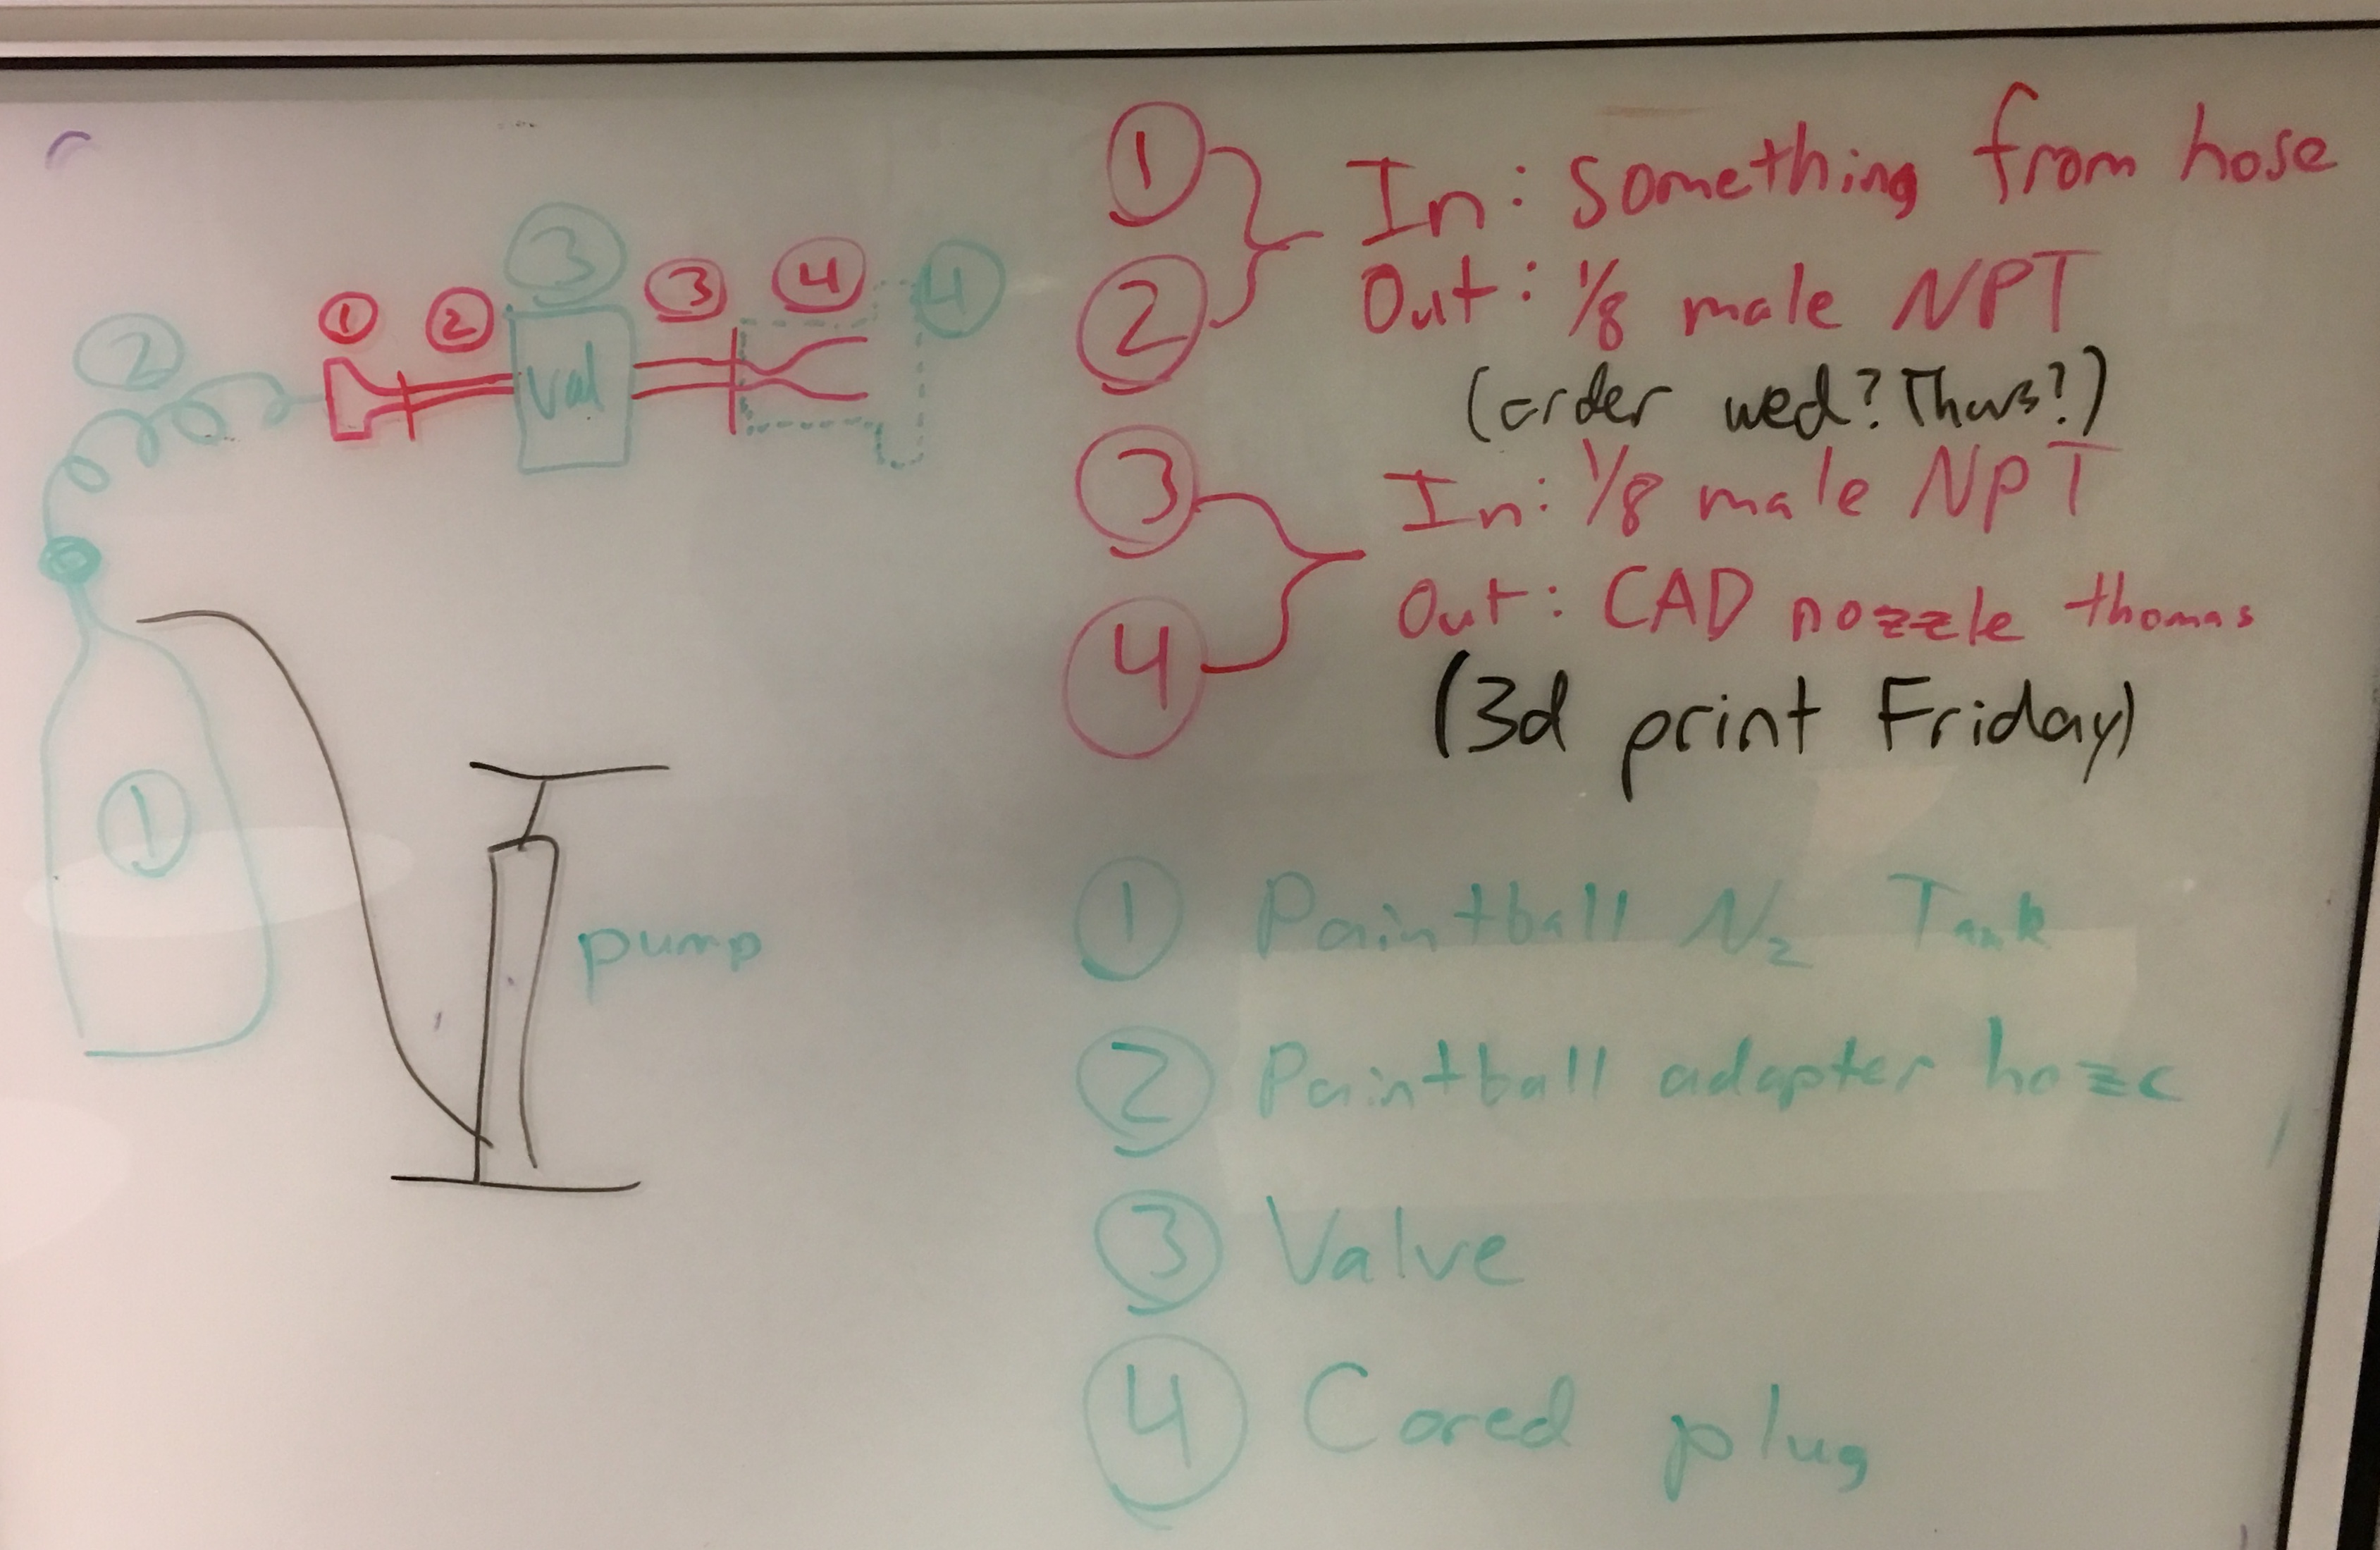 3
4
4
1
2
3
2
Val
1
pump
1
In: Something from hose
2
Out: 1/8 male NPT
(order wed? Thurs?)
3
In: 1/8 male NPT
4
Out: CAD nozzle thomas
(3d print Friday)
1 Paintball N₂ Tank
2 Paintball adapter hoze
3 Valve
4 Cored plug